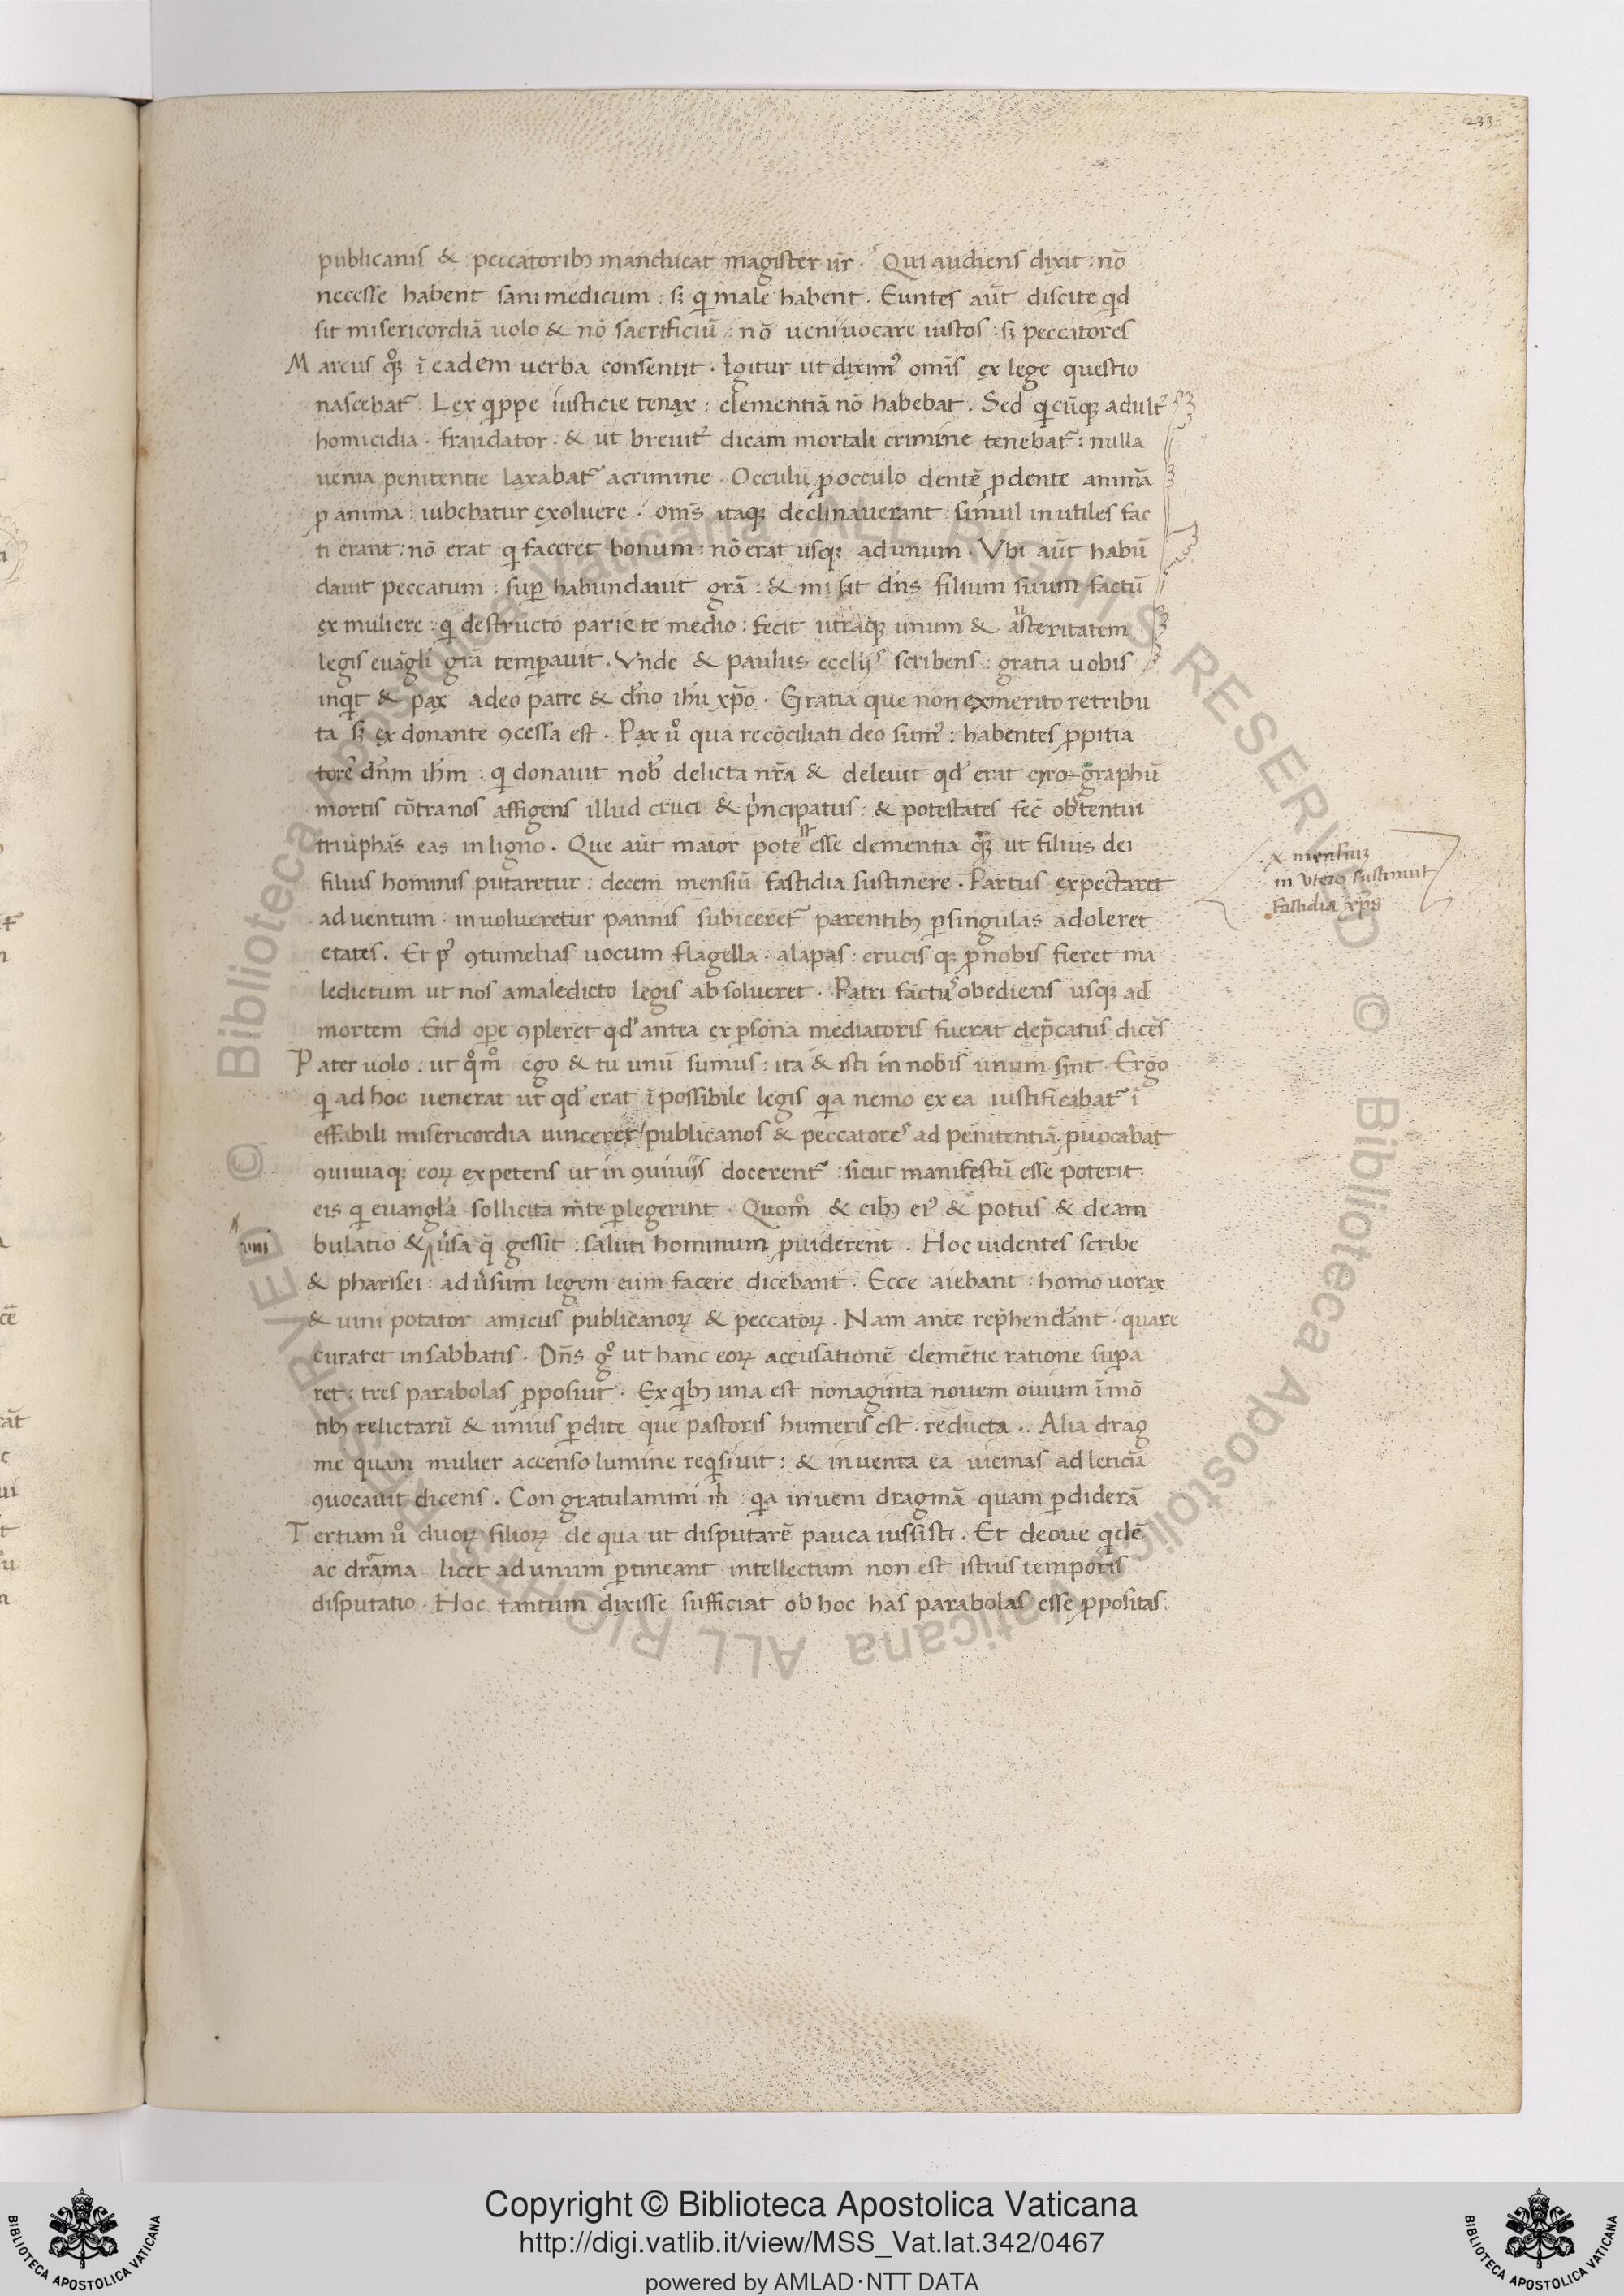 233
publicanis & peccatoribꝫ manducat magister ur̄. Qui audiens dixit: nō
necesse habent sani medicum: sꝫ qi male habent. Euntes aūt discite qd
sit misericordiā uolo & nō sacrificiū: nō ueni uocare iustos: sꝫ peccatores
Marcus qͦꝫ ī eadem uerba consentit. Igitur ut diximꝰ om̄s ex lege questio
nascebat᷑. Lex qippe iusticie tenax: clementiā nō habebat. Sed qicūqꝫ adult᷑
homicidia. fraudator. & ut breuit᷑ dicam mortali crimine tenebat᷑: nulla
uenia penitentie laxabat᷑ acrimine. Occulū ꝓocculo dentē ꝓdente animā
ꝓ anima: iubebatur exoluere. om̄s itaqꝫ declinauerant: simul inutiles fac
ti erant: nō erat qi faceret bonum: nō erat usqꝫ adunum. Vbi aūt habū
dauit peccatum: suꝑ habundauit grā: & misit dn̄s filium suum factū
ex muliere: qi destructo pariete medio: fecit utraqꝫ unum & austeritatem
legis euāgli grā temꝑauit. Vnde & paulus eccliis scribens: gratia uobis
inqit & pax adeo patre & dn̄o ihu xp̄o. Gratia que non exmerito retribu
ta sꝫ ex donante ꝯcessa est. Pax uͦ qua recōciliati deo sumꝰ: habentes ꝓpitia
torē dn̄m ihm: qi donauit nob̄ delicta nr̄a & deleuit qd̓ erat cyrographū
mortis cōtranos affigens illud cruci & pͥncipatus: & potestates fec̄ obtentui
triūphās eas inligno. Que aūt maior potest esse clementia qꝫ ut filius dei
filius hominis putaretur: decem mensiū fastidia sustinere. Partus expectaret
aduentum. inuolueretur pannis subiceret᷑ parentibꝫ ꝑsingulas adoleret
etates. Et pꝰ ꝯtumelias uocum flagella. alapas: crucis qꝫ ꝓnobis fieret ma
ledictum ut nos amaledicto legis absolueret. Patri factuˢ obediens usqꝫ ad
mortem & id oꝑe ꝯpleret qd̓ antea ex ꝑsona mediatoris fuerat dep̄catus dicēs
Pater uolo: ut qͦmͦ ego & tu unū sumus: ita & isti in nobis unum sint. Ergo
qi ad hoc uenerat ut qd̓ erat īpossibile legis qia nemo ex ea iustificabat᷑ ī
effabili misericordia uinceret/publicanos & peccatores ad penitentiā ꝓuocabat
ꝯuiuiaqꝫ eoꝝ expetens ut in ꝯuiuijs docerent᷑: sicut manifestū esse poterit
eis qi euangl̓a sollicita m̄te ꝑlegerint. Quomͦ & cibꝫ eiꝰ & potus & deam
bulatio & uˢsa q̄ gessit: saluti hominum ꝓuiderent. Hoc uidentes scribe
& pharisei: aduˢsum legem eum facere dicebant. Ecce aiebant. homo uorax
& uini potator amicus publicanoꝝ & peccatoꝝ. Nam ante rep̄hend̓ant. quare
curaret insabbatis. Dn̄s gͦ ut hanc eoꝝ accusationē clemētie ratione suꝑa
ret: tres parabolas ꝓposuit. Ex qibꝫ una est nonaginta nouem ouium īmō
tibꝫ relictarū & unius ꝑdite que pastoris humeris est reducta.. Alia drag
me quam mulier accenso lumine reqisiuit: & inuenta ea uicinas ad leticiā
ꝯuocauit dicens. Con gratulamini m̄: qia inueni dragmā quam ꝑdiderā
Tertiam uͦ duoꝝ filioꝝ de qua ut disputarē pauca iussisti. Et deoue qdē
ac drāma licet adunum ꝑtineant intellectum non est istius temporis
disputatio. Hoc tantum dixisse sufficiat ob hoc has parabolas esse ꝓpositas:
x mensiuꝫ
in vtero sustinuit
fastidia xp̄s
Copyright © Biblioteca Apostolica Vaticana
http://digi.vatlib.it/view/MSS_Vat.lat.342/0467
powered by AMLAD·NTT DATA
BIBLIOTECA APOSTOLICA VATICANA
BIBLIOTECA APOSTOLICA VATICANA
© Biblioteca Apostolica Vaticana ALL RIGHTS RESERVED
© Biblioteca Apostolica Vaticana ALL RIGHTS RESERVED